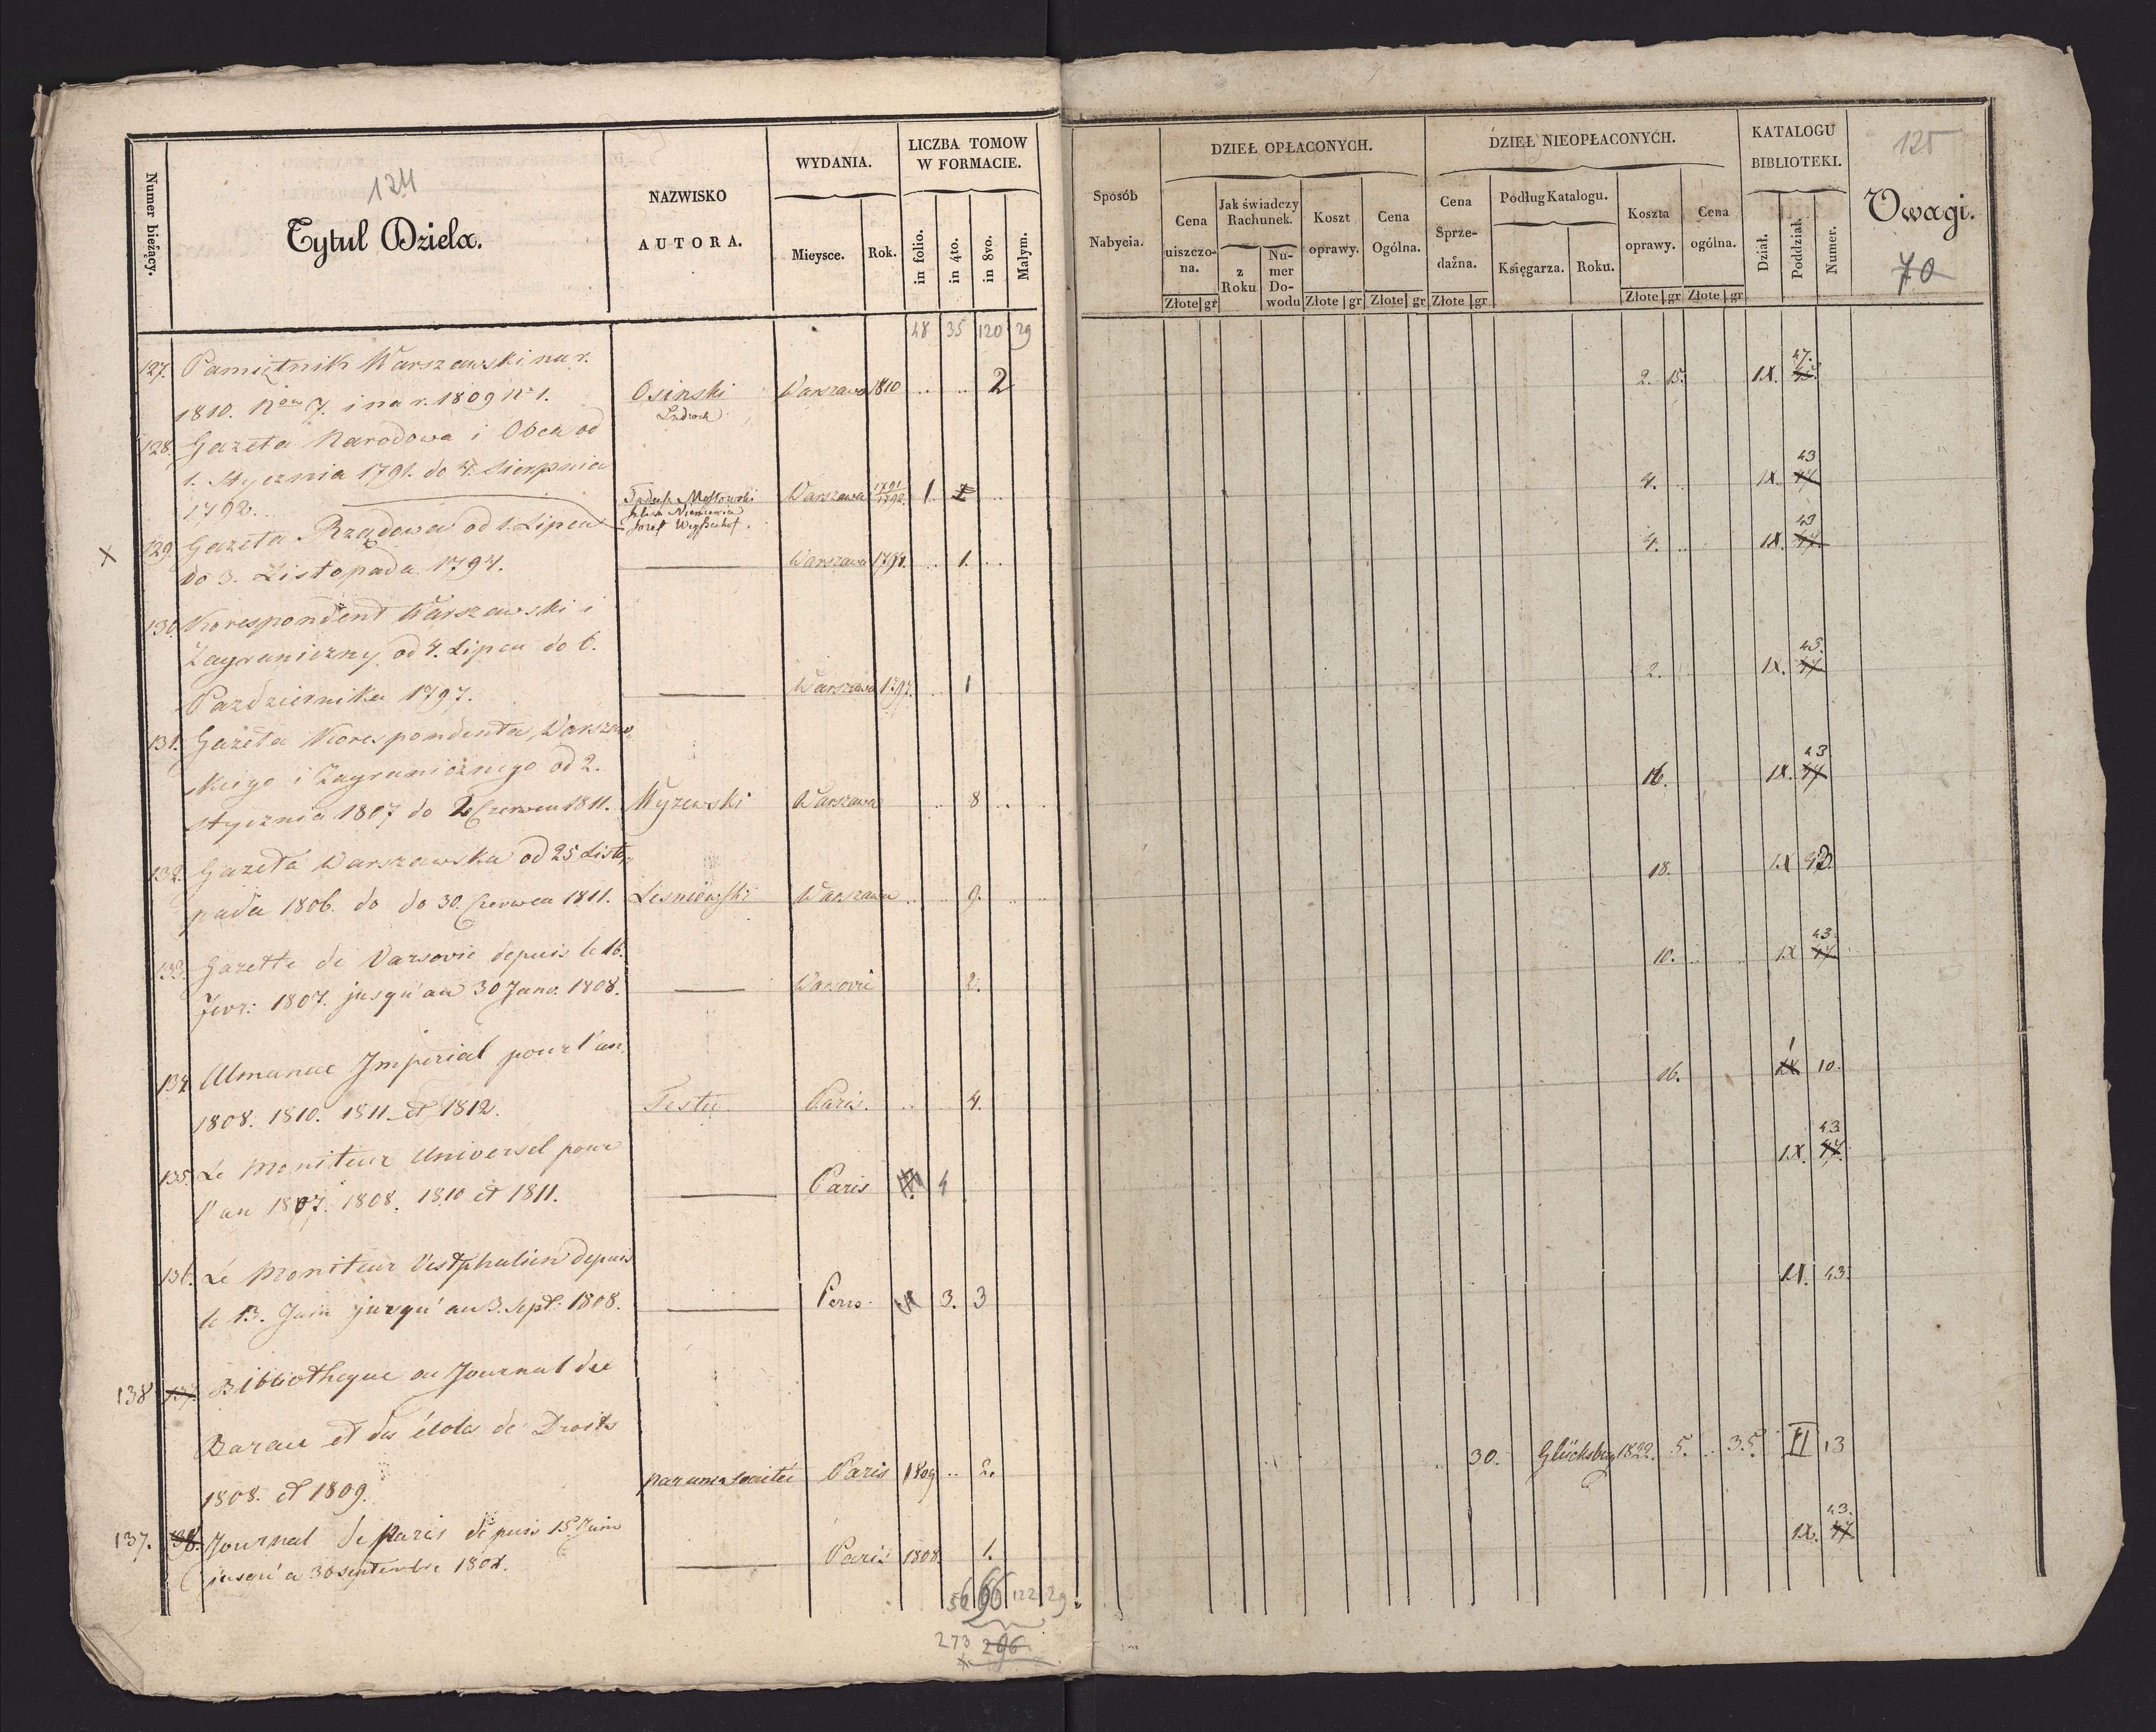 124
Numer bieżący.
Tytul Dziela.
NAZWISKO
AUTORA.
WYDANIA.
Mieysce.
Rok.
LICZBA TOMOW
W FORMACIE.
in folio.
in 4to.
in 8vo.
Małym.
48 35 120 29
127. Pamiętnik Warszawski na r.
1810. Nów 7. i na r. 1809 Nr 1. Osinski Warszawa 1810 .. .. 2
Ludwik
128. Gazeta Narodowa i Obca od
1. Stycznia 1791. do 4. Sierpnia
1792. Tadeusz Mostowski Warszawa 1791/1792. 1. 1 ..
Julian Niemcewicz
Jozef Weyssenhof.
X 129. Gazeta Rządowa od 1. Lipca
do 3. Listopada 1794. Warszawa 1794. .. 1. ..
130. Korespondent Warszawski i
Zagraniczny od 4. Lipca do 6.
Pazdziernika 1797. Warszawa 1797. .. 1
131. Gazeta Korespondenta Warszaw
skiego i Zagranicznego od 2.
stycznia 1807 do Czerwca 1811. Wyzewski Warszawa .. 8 ..
132. Gazeta Warszawska od 25 Listo
pada 1806. do do 30. Czerwca 1811. Lesniewski Warszawa .. .. 9. ..
133. Gazette de Varsovie depuis le 16.
Fevr: 1807. jusqu'au 30 Janv. 1808. Warsovie 2.
134. Almanac Imperial pour l'an
1808. 1810. 1811. et 1812. Testu Paris. .. .. 4.
135. Le Moniteur Universel pour
l'an 1807. 1808. 1810 et 1811. Paris 4
136. Le Moniteur Vestphalien depuis
le 13. Juin jusqu' au 3. Sept: 1808. 3. 3
138 137. Bibliotheque ou Journal du
Barau et des écoles de Droits
1808. et 1809. par une société Paris 1809 .. 2.
137. 138. Journal de Paris depuis 15. Juin
jusqu' a 30 septembre 1808. Paris 1808. 1.
56 66 122 29
273 296
Sposób
Nabycia.
DZIEŁ OPŁACONYCH.
Cena
uiszczo-
na.
Złote gr
Jak świadczy
Rachunek.
z
Roku
Nu-
mer
Do-
wodu
Koszt
oprawy.
Złote gr
Cena
Ogólna.
Złote gr
DZIEŁ NIEOPŁACONYCH.
Cena
Sprze-
dażna.
Złote gr
Podług Katalogu.
Księgarza.
Roku.
Koszta
oprawy.
Złote gr
Cena
ogólna.
Złote gr
KATALOGU
BIBLIOTEKI.
Dział.
Poddział.
Numer.
125
Uwagi.
70
47.
2. 15. IX. 45.
43
4. .. IX. 47
43
4. .. IX. 47.
43.
2. IX. 47
43
16. IX. 47
18. IX 43.
43.
10. .. IX 47
1
16. IX 10.
43
IX. 47.
IX. 43.
30. Glücksberg 1822. 5. .. 35. II 13
43.
IX. 47.